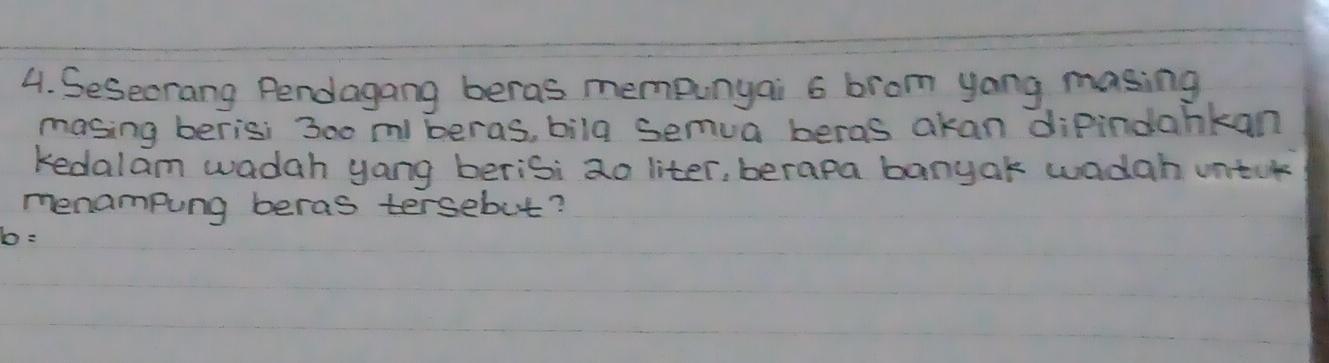 4. Seseorang Pendagang beras mempunyai 6 brom yang masing
masing berisi 300 ml beras, bila semua beras akan dipindahkan
kedalam wadah yang berisi 20 liter, berapa banyak wadah untuk
menampung beras tersebut?
b=